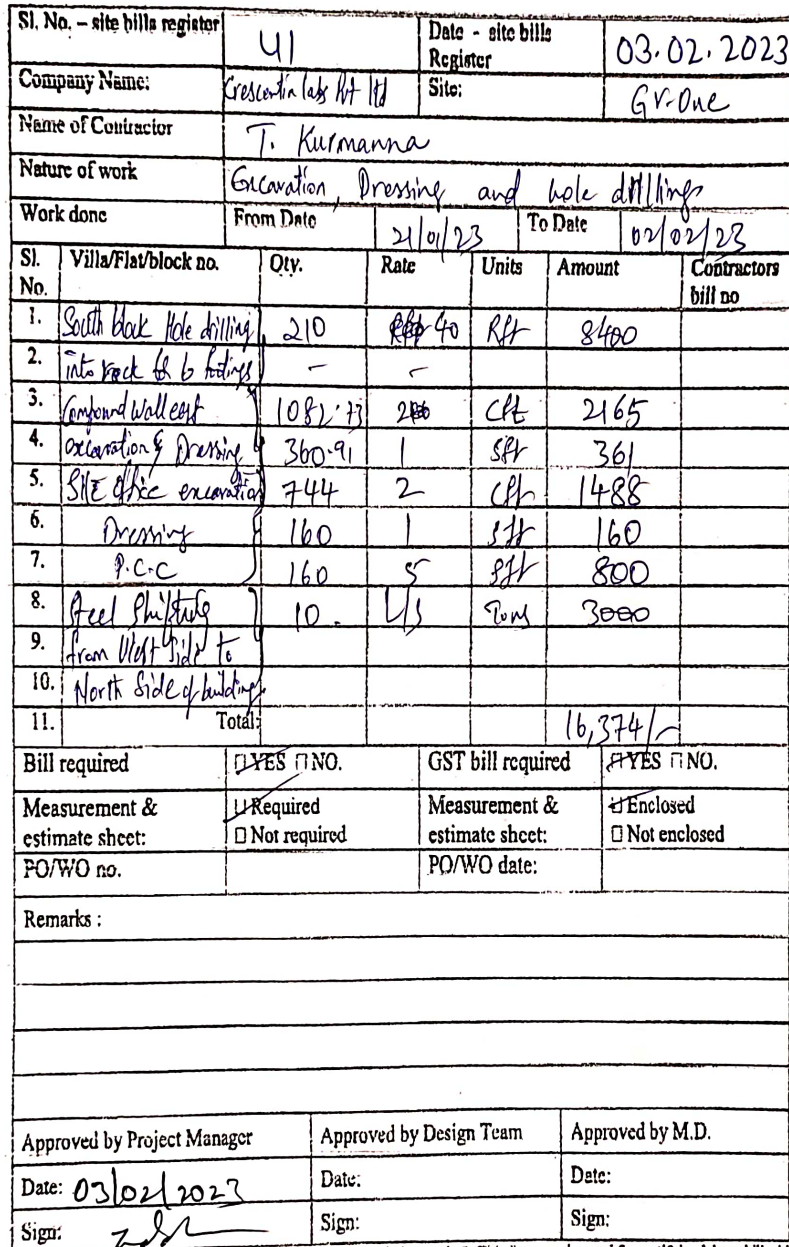 Sl. No. – site bills register 41 Date - site bills Register 03.02.2023
Company Name: Crescentia labs Pvt ltd Site: GV-One
Name of Contractor T. Kurmanna
Nature of work Excavation, Dressing and hole drillings
Work done From Date 21/01/23 To Date 02/02/23
Sl. No. Villa/Flat/block no. Qty. Rate Units Amount Contractors bill no
1. South block Hole drilling 210 40 Rft 8400
2. into rock 6 - -
3. Compound wall 1082.73 2 Cft 2165
4. excavation & Dressing 360.91 1 Sft 361
5. Site office excavation 744 2 Cft 1488
6. Dressing 160 1 Sft 160
7. P.C.C 160 5 Sft 800
8. Steel Shifting 10. L/S Tons 3000
9. from West Side to
10. North Side of building
11. Total: 16,374/-
Bill required YES NO. GST bill required YES NO.
Measurement & estimate sheet: Required Not required Measurement & estimate sheet: Enclosed Not enclosed
PO/WO no. PO/WO date:
Remarks :
Approved by Project Manager Approved by Design Team Approved by M.D.
Date: 03/02/2023 Date: Date:
Sign: Sign: Sign: